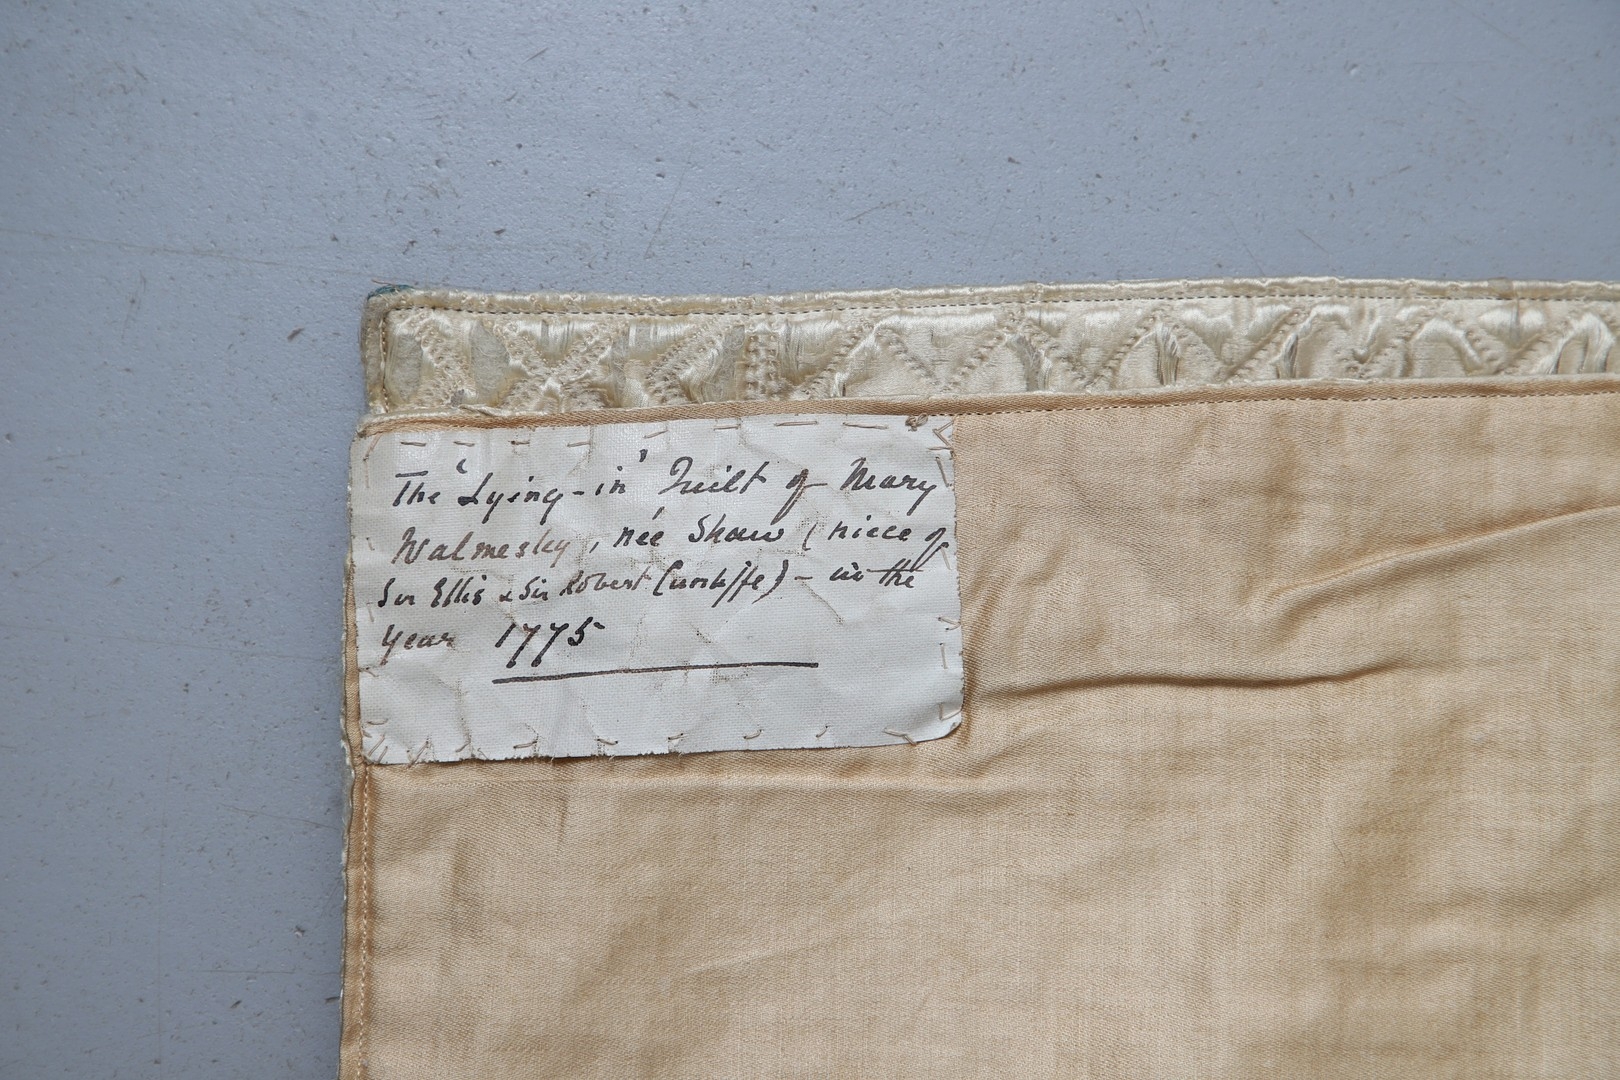 The 'Lying-in' Quilt of Mary
Walmesley, née Shaw (niece of
Sir Ellis & Sir Robert Cunliffe) - in the
year 1775